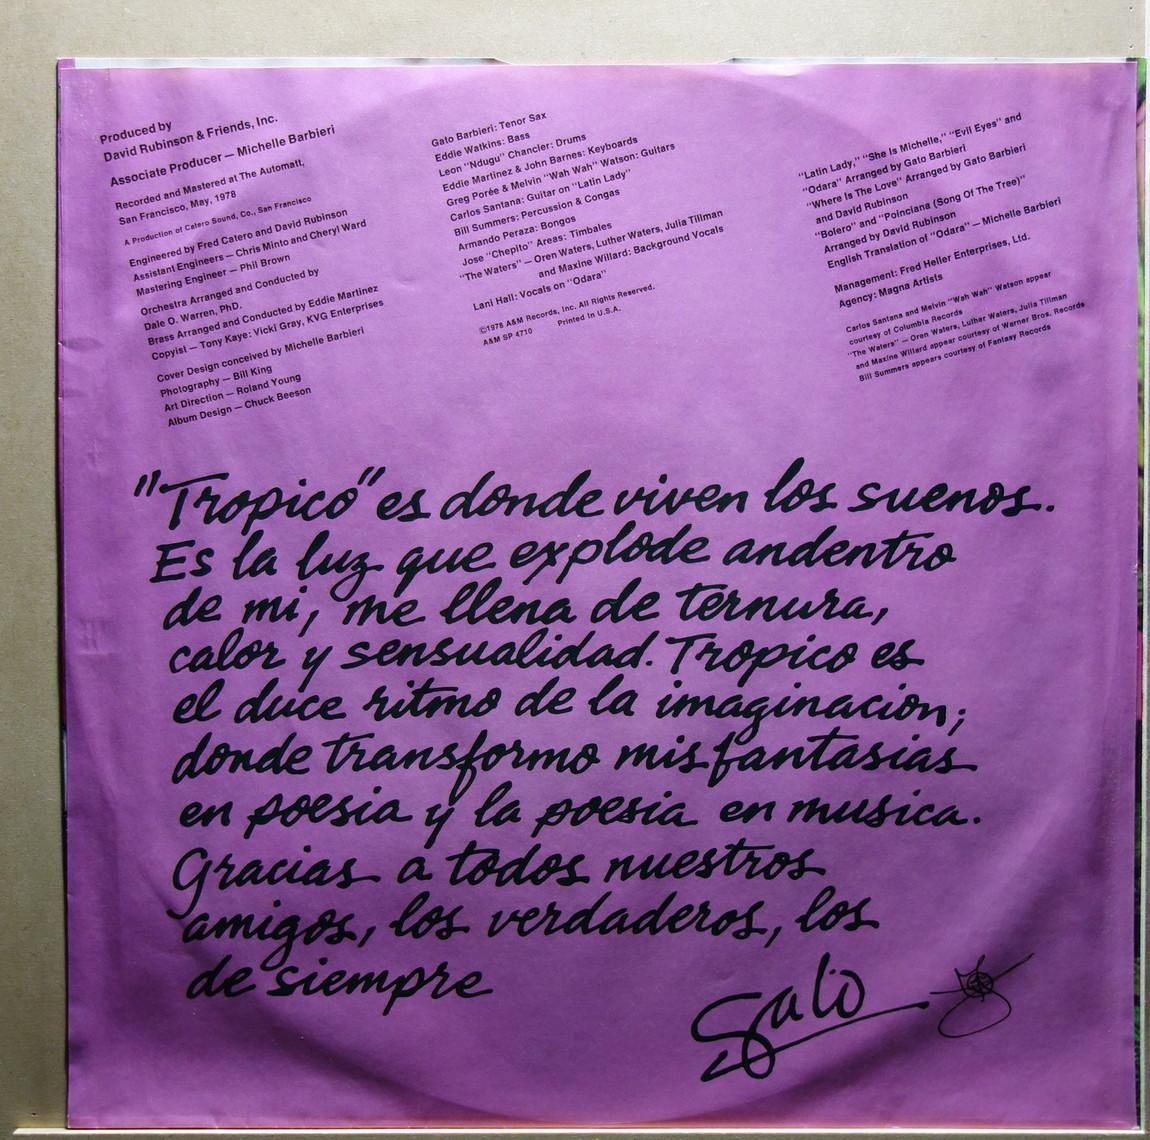 Produced by
David Rubinson & Friends, Inc.
Associate Producer — Michelle Barbieri
Recorded and Mastered at The Automatt,
San Francisco, May, 1978
A Production of Catero Sound, Co., San Francisco
Engineered by Fred Catero and David Rubinson
Assistant Engineers — Chris Minto and Cheryl Ward
Mastering Engineer — Phil Brown
Orchestra Arranged and Conducted by
Dale O. Warren, PhD.
Brass Arranged and Conducted by Eddie Martinez
Copyist — Tony Kaye: Vicki Gray, KVG Enterprises
Cover Design conceived by Michelle Barbieri
Photography — Bill King
Art Direction — Roland Young
Album Design — Chuck Beeson
Gato Barbieri: Tenor Sax
Eddie Watkins: Bass
Leon "Ndugu" Chancler: Drums
Eddie Martinez & John Barnes: Keyboards
Greg Porée & Melvin "Wah Wah" Watson: Guitars
Carlos Santana: Guitar on "Latin Lady"
Bill Summers: Percussion & Congas
Armando Peraza: Bongos
Jose "Chepito" Areas: Timbales
"The Waters" — Oren Waters, Luther Waters, Julia Tillman
and Maxine Willard: Background Vocals
Lani Hall: Vocals on "Odara"
©1978 A&M Records, Inc. All Rights Reserved.
A&M SP 4710 Printed in U.S.A.
"Latin Lady," "She Is Michelle," "Evil Eyes" and
"Odara" Arranged by Gato Barbieri
"Where Is The Love" Arranged by Gato Barbieri
and David Rubinson
"Bolero" and "Poinciana (Song Of The Tree)"
Arranged by David Rubinson
English Translation of "Odara" — Michelle Barbieri
Management: Fred Heller Enterprises, Ltd.
Agency: Magna Artists
Carlos Santana and Melvin "Wah Wah" Watson appear
courtesy of Columbia Records
"The Waters" — Oren Waters, Luther Waters, Julia Tillman
and Maxine Willard appear courtesy of Warner Bros. Records
Bill Summers appears courtesy of Fantasy Records
"Tropico" es donde viven los suenos.
Es la luz que explode andentro
de mi, me llena de ternura,
calor y sensualidad. Tropico es
el duce ritmo de la imaginacion;
donde transformo mis fantasias
en poesia y la poesia en musica.
Gracias a todos nuestros
amigos, los verdaderos, los
de siempre
Gato